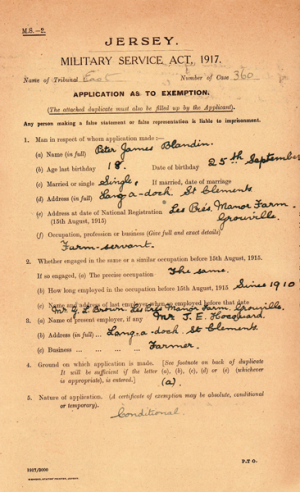 M.S.—2.
JERSEY.
MILITARY SERVICE ACT, 1917.
Name of Tribunal East Number of Case 360
APPLICATION AS TO EXEMPTION.
(The attached duplicate must also be filled up by the Applicant).
Any person making a false statement or false representation is liable to imprisonment.
1. Man in respect of whom application made :—
(a) Name (in full) Peter James Blandin.
(b) Age last birthday 18. Date of birthday 25th September
(c) Married or single Single. If married, date of marriage
(d) Address (in full) Lang-a-doch, St Clements
(e) Address at date of National Registration Les Prés Manor Farm.
(15th August, 1915) Grouville.
(f) Occupation, profession or business (Give full and exact details)
Farm-servant.
2. Whether engaged in the same or a similar occupation before 15th August, 1915.
If so engaged, (a) The precise occupation The same.
(b) How long employed in the occupation before 15th August, 1915 Since 1910
(c) Name and address of last employer when so employed before that date
Mr G. L Brown. Les Prés Manor Farm Grouville.
3. (a) Name of present employer, if any Mr J. E. Hocquard.
(b) Address (in full) Lang-a-doch. St Clements.
(c) Business Farmer.
4. Ground on which application is made. [See footnote on back of duplicate
It will be sufficient if the letter (a), (b), (c), (d) or (e) (whichever
is appropriate), is entered.] (a).
5. Nature of application. (A certificate of exemption may be absolute, conditional
or temporary).
Conditional.
P.T.O.